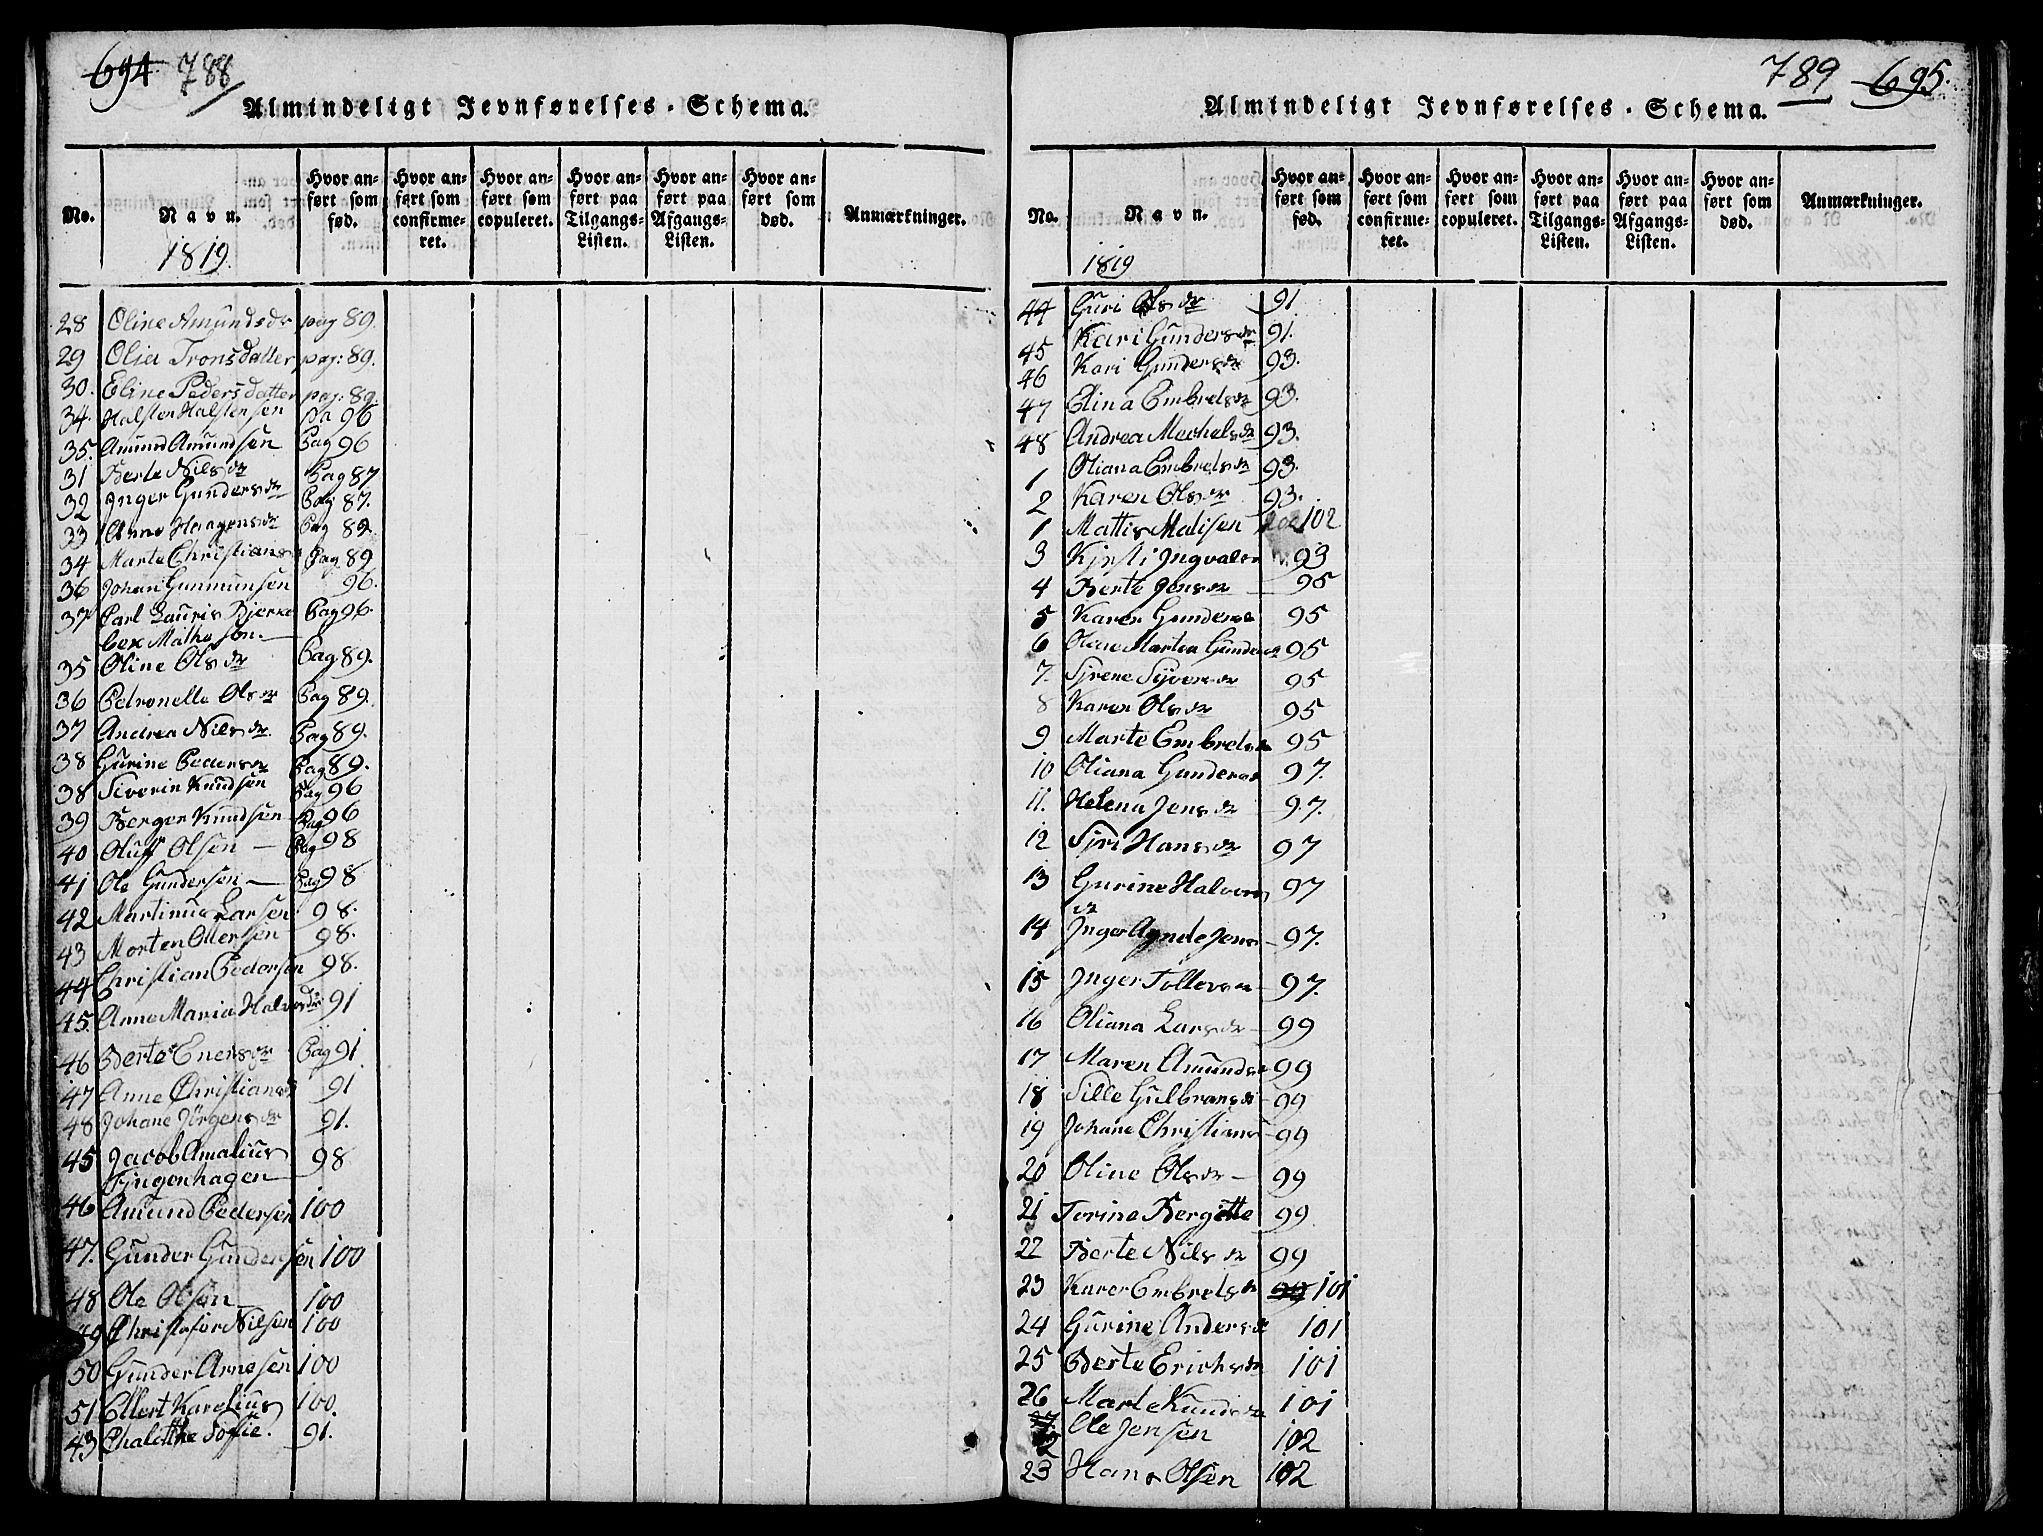 694 788
Almindeligt Jevnførelses-Schema.
No. Navn. Hvor anført som fød. Hvor anført som confirmeret. Hvor anført som copuleret. Hvor anført paa Tilgangs-Listen. Hvor anført paa Afgangs-Listen. Hvor anført som død. Anmærkninger.
1819.
28 Oline Amundsdr pag 89.
29 Olia Tronsdatter pag: 89.
30. Eline Pedersdatter pag: 89.
34. Halsten Halstensen Pa 96
35. Amund Amundsen Pag 96
31 Berte Nilsdr Pag 87
32 Inger Gundersdr Pag 87.
33 Anne Haagensdr Pag 89
34 Marte Christians Pag 89
36 Johan Gunmunsen 96.
37 Carl Lauris Bjerke Pag 96.
bex Mathesøn.
35 Oline Olsdr Pag 89.
36 Petronelle Olsdr Pag 89.
37 Andrea Nilsdr Pag 89.
38 Gurine Pedersdr Pag 89.
38 Siverin Knudsen Pag 96
39 Berger Knudsen Pag 96
40 Oluff Olsen — Pag 98
41 Ole Gundersen — Pag 98
42 Martinus Larsen 98.
43 Morten Ollersen 98.
44 Christian Pedersen 98.
45. Anne Maria Halvorsdr 91
46 Berte Enersdr Pag 91
47 Anne Christiansdr 91
48 Johane Jörgensdr 91.
45 Jacob Amalius 98
Tyngenhagen
46 Amund Pedersen 100
47. Gunder Gundersen 100
48 Ole Olsen 100
49 Christofor Nilsen 100
50 Gunder Arnesen 100
51 Ellert Karelius 100.
43 Chalotthe Soffie. 91.
789 695.
Almindeligt Jevnførelses-Schema.
No. Navn. Hvor anført som fød. Hvor anført som confirmeret. Hvor anført som copuleret. Hvor anført paa Tilgangs-Listen. Hvor anført paa Afgangs-Listen. Hvor anført som død. Anmærkninger.
1819
44 Guri Olsdr 91
45 Kari Gundersdr 91.
46 Kari Gundersdr 93.
47 Elina Embretsdr 93.
48 Andrea Mechelsdr 93.
1 Oliana Embretsdr 93.
2 Karen Olsdr 93.
1 Mattis Matisen 102
3 Kjrsti Ingvalsdr 93
4 Berte Jensdr 95
5 Karen Gundersdr 95
6 Oline Martea Gundersdr 95
7. Sjrene Syversdr 95
8 Karen Olsdr 95
9 Marte Embretsdr 95
10 Oliana Gundersdr 97.
11. Helena Jensdr 97.
12 Sjri Hansdr 97
13 Gurine Halvors 97
dr
14 Inger Agnde Jens 97.
15 Inger Tollevsdr 97.
16 Oliana Larsdr 99
17 Maren Amundsdr 99
18 Sille Gulbransdr 99
19 Johane Christians 99
20 Oline Olsdr — 99
21 Torine Bergitte 99
22 Berte Nilsdr 99
23 Karen Embretsdr 99 101
24 Gurine Andersdr 101
25 Berte Erichsdr 101
26 Marte Kundsdr 101
2 Ole Jensen 102
23 Hans Olsen 102